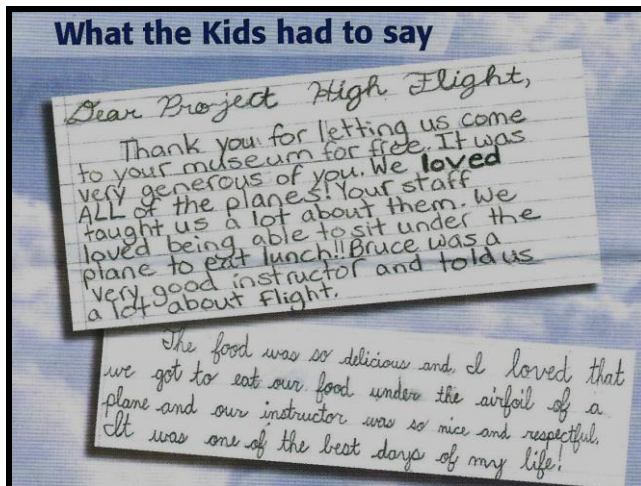 What the Kids had to say
Dear Project High Flight,
Thank you for letting us come
to your museum for free. It was
very generous of you. We loved
ALL of the planes! Your staff
taught us a lot about them. We
loved being able to sit under the
plane to eat lunch!! Bruce was a
very good instructor and told us
a lot about flight.
The food was so delicious and I loved that
we got to eat our food under the airfoil of a
plane and our instructor was so nice and respectful.
It was one of the best days of my life!